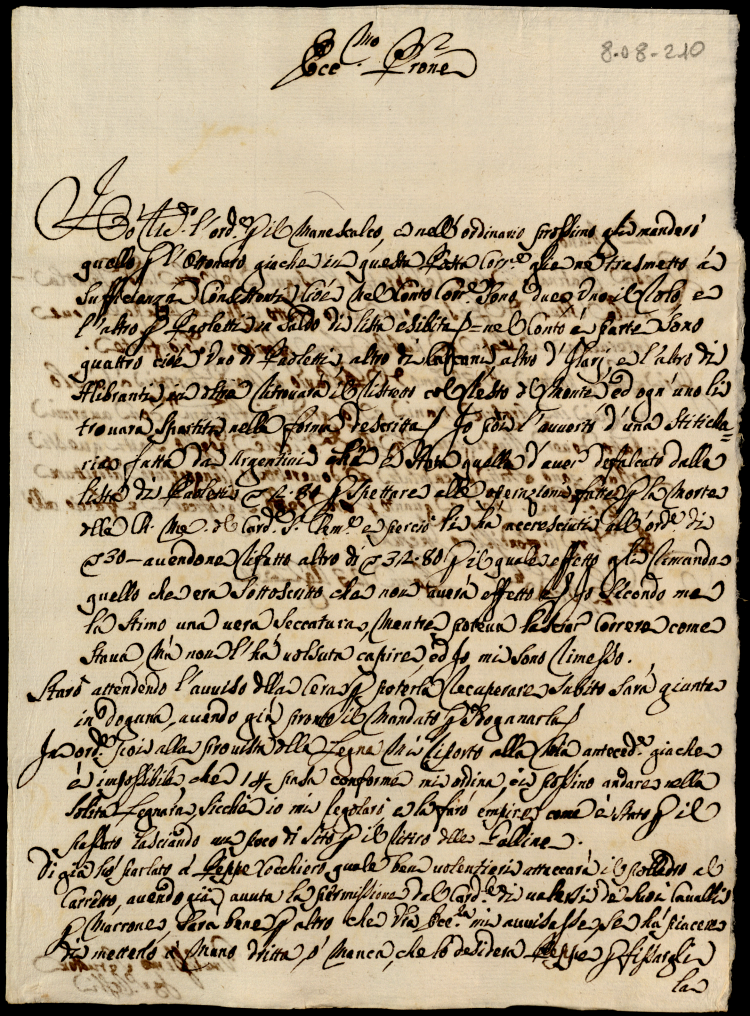 8-08-210
Ecc.mo Sr. Prone
Hò Ric.to l'ord.e p il Manescalco, e nell'ordinario prossimo gli manderò
quello p l'Ottonaro giache in questa Posta Corr.e glie ne trasmetto à
sufficienza Consistenti, cioè nel Conto Corr.e sono due, Uno il Ciolo, e
l'altro p Paoletti in saldo di lista esibita = nel Conto à parte sono
quattro cioè Uno di Paoletti, altro di altro d' e l'altro di
Alibranti, in oltre ritrovarà il ristretto col resto del Monte, ed ogn'uno li
trovarà spartito nella forma descritta. Io poi l'avverto d'una Stiticha=
ria fatta da Argentini, e stata quella d'aver defalcato dalla
lista di Paoletti 2.80 p spettare alle operazioni fatte p la Morte
della Ch. Me. del Card. S. Clem.e e perciò li hà accresciuti all'ord.e di
30 - avendone rifatto altro di 32.80 p il quale effetto gli rimanda
quello che era sottoscritto che non averà effetto. Io secondo me
la stimo una vera seccatura, mentre poteva lasciar correre come
stava, Mà non l'hà volsuta capire, ed Io, mi sono rimesso.
Starò attendendo l'avviso della Cera p poterla recuperare subito sarà giunta
in Dogana, avendo già pronto il Mandato p sdoganarla
In ord.e poi alla provista della Legna mi riporto alla mia anteced.e giache
è impossibile che 14 passa conforme mi ordina, possino andare nella
solita Legnara, sicchè io mi regolarò, e la farò empire come è stato p il
passato lasciando un poco di sito p il ritiro delle Galline.
Di già hò parlato à Peppe Cocchiero quale ben volentieri attaccarà il polledro al
Carretto, avendo già avuta la permissione dal Card.e di valersi de suoi Cavalli
p Marrone, sarà bene p altro che V'ra Ecc.za mi avvisasse se hà piacere
di metterlo à Mano dritta, ò Manca, che lo desidera Peppe p fissargli
la